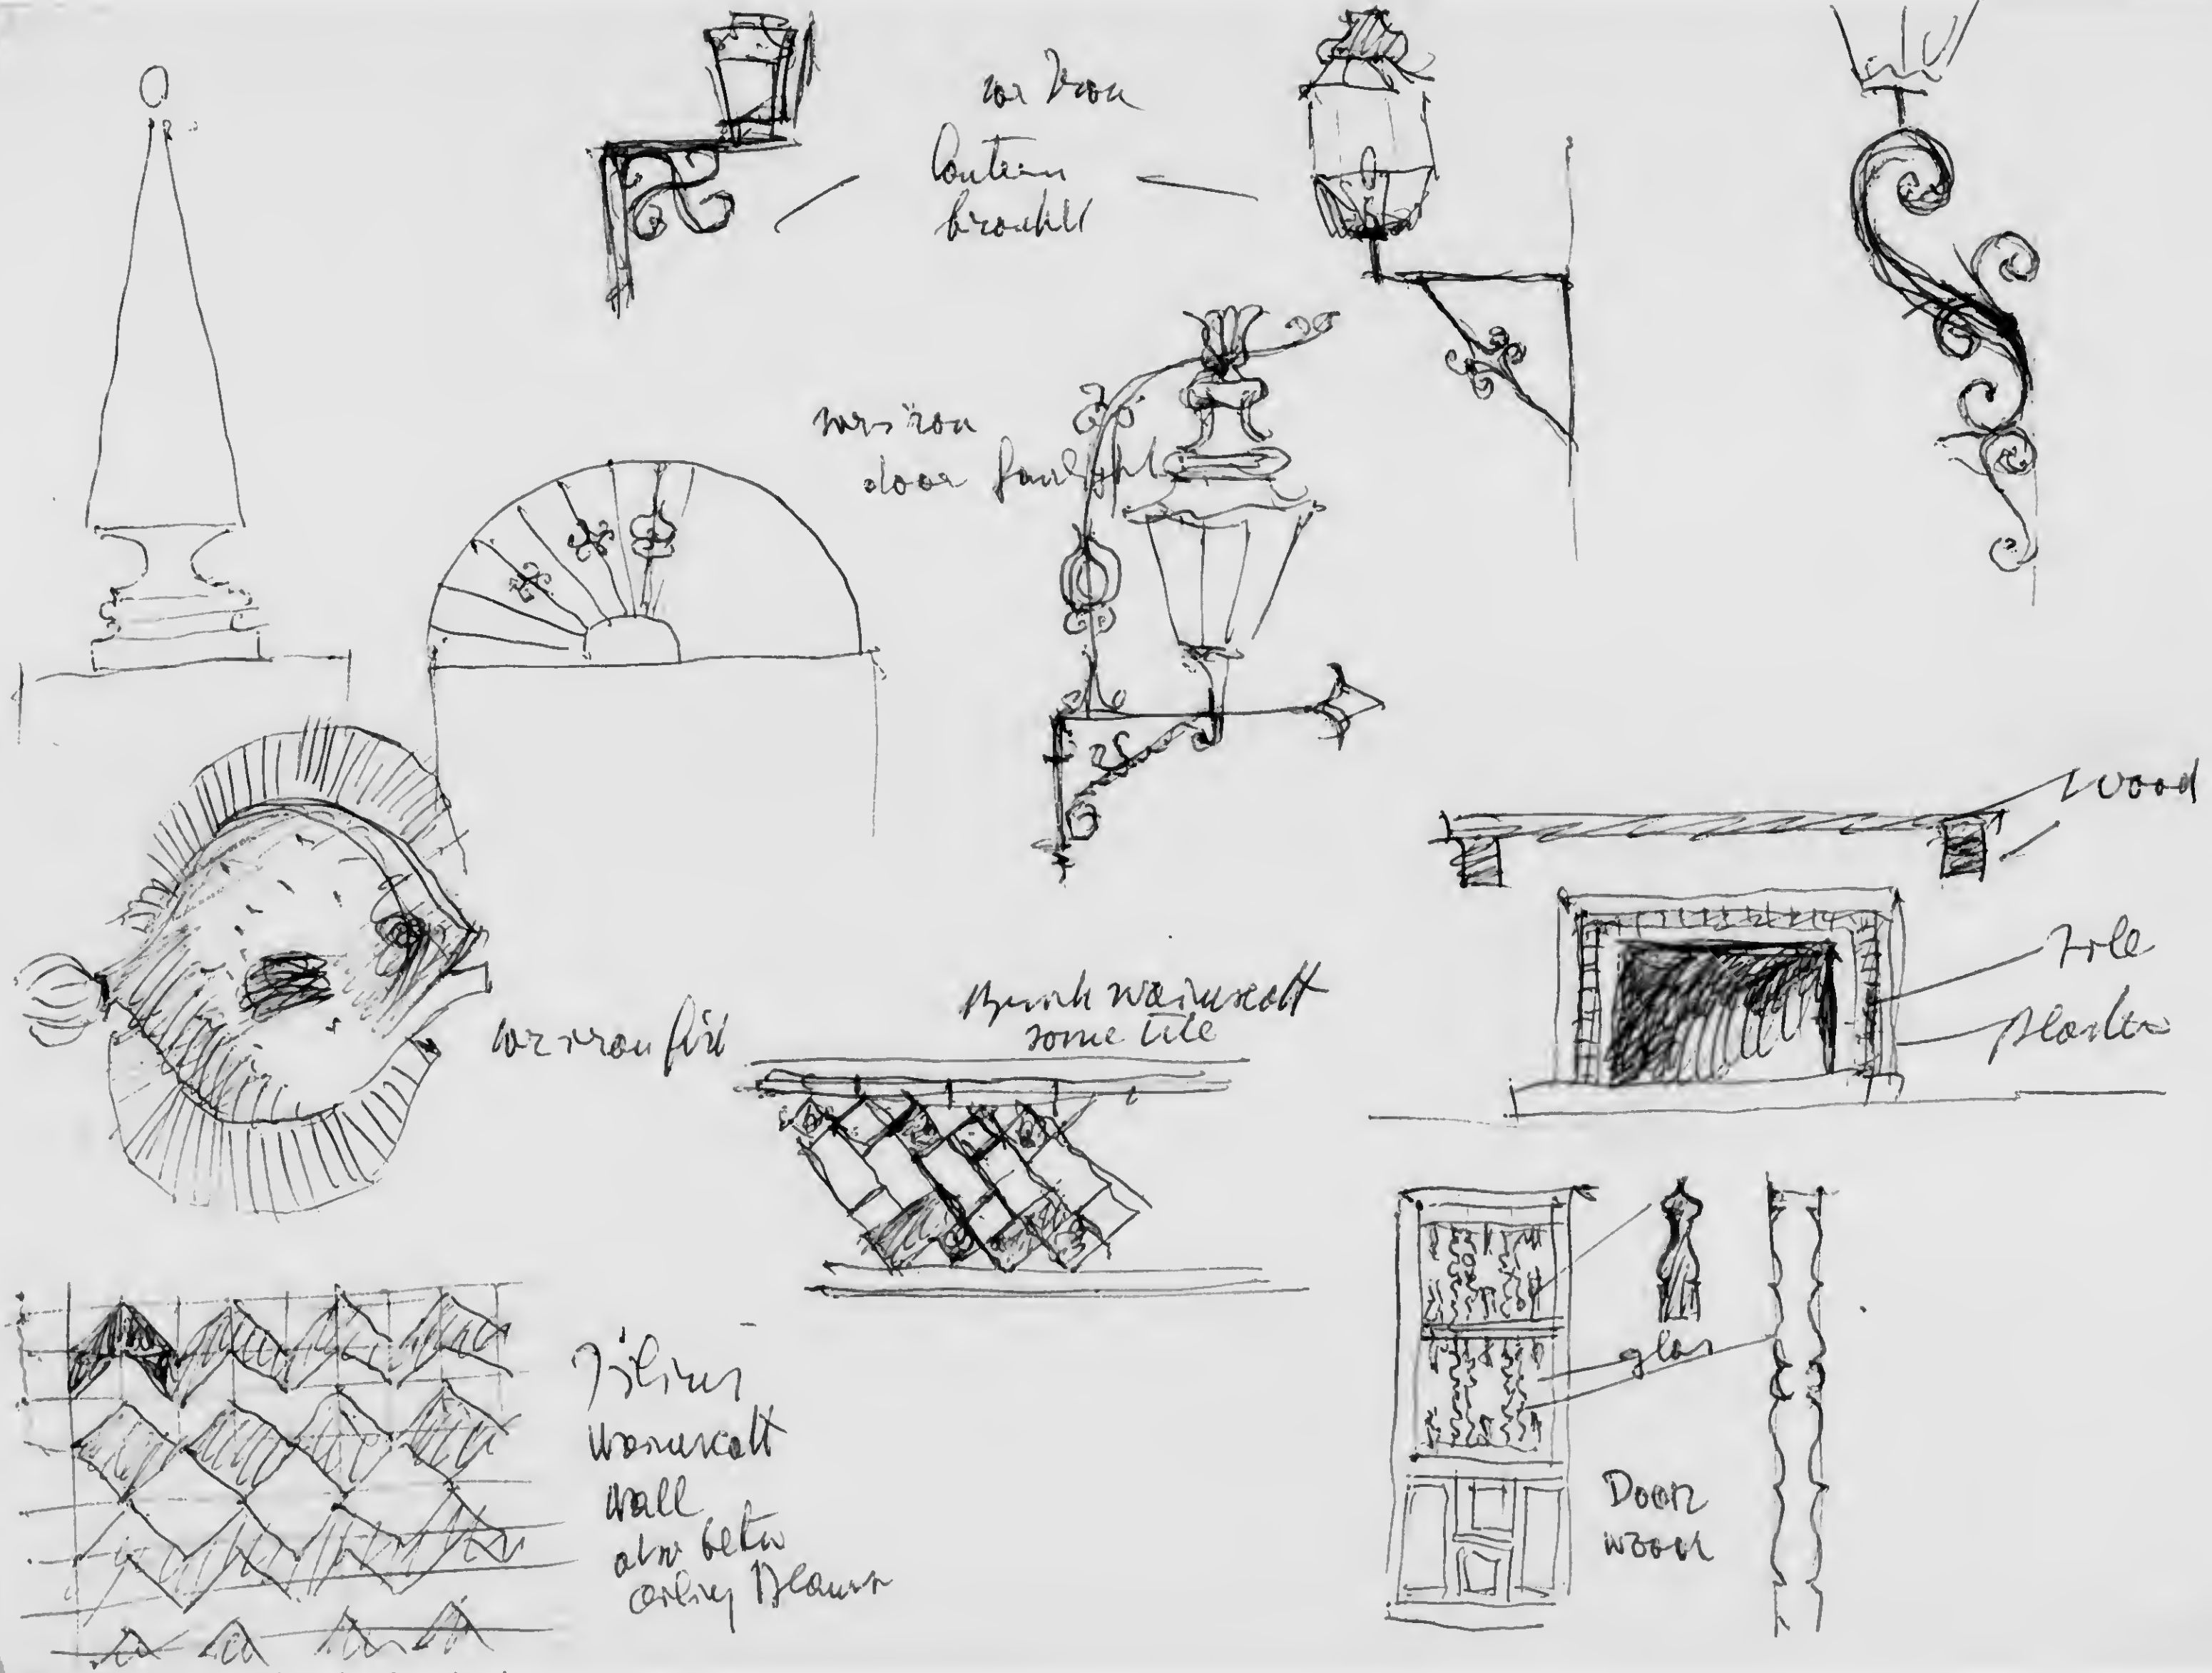 wr iron
lantern
bracket
wr iron
door fanlight
wood
tile
plaster
wr iron fish
Brick wainscott
some tile
glas
Tiling
wainscott
wall
also betw
ceiling beams
Door
wood